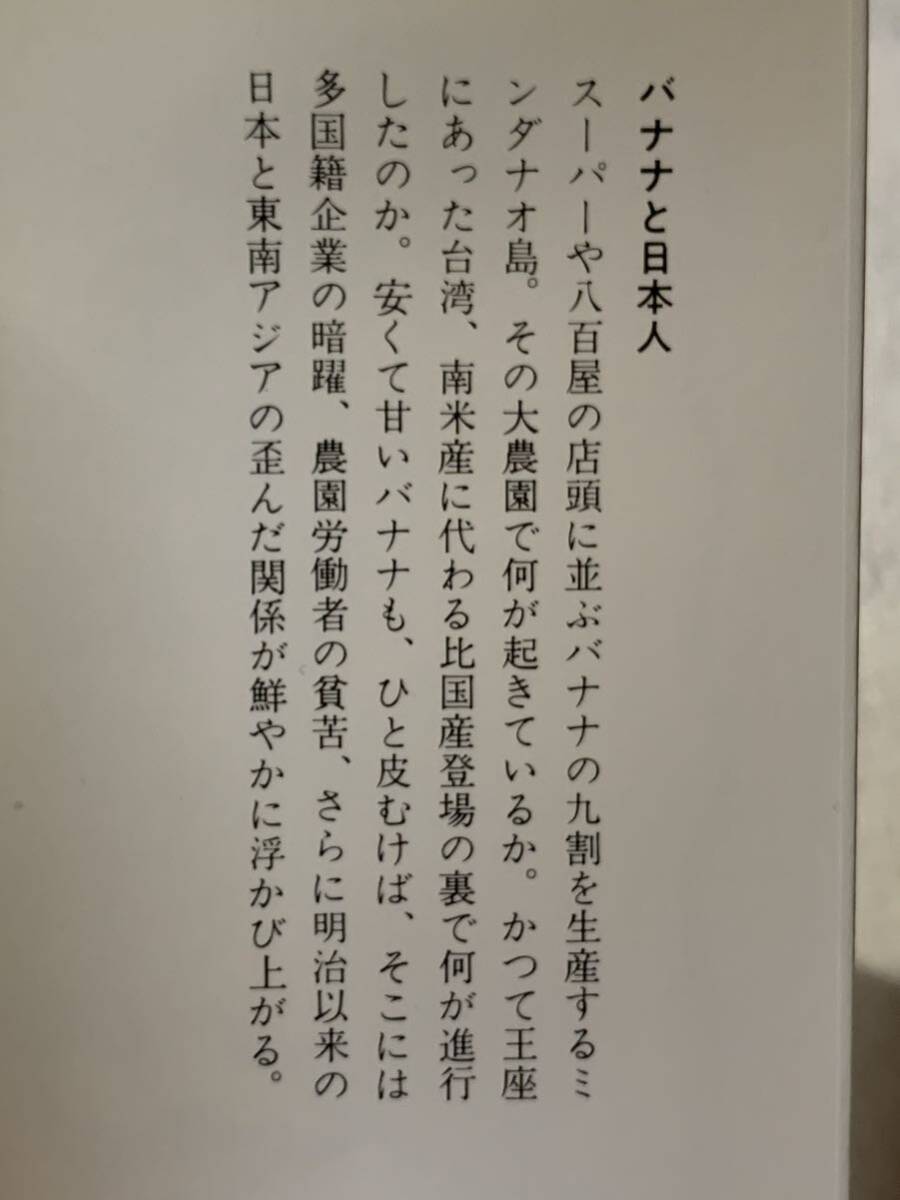 バナナと日本人
スーパーや八百屋の店頭に並ぶバナナの九割を生産するミ
ンダナオ島。その大農園で何が起きているか。かつて王座
にあった台湾、南米産に代わる比国産登場の裏で何が進行
したのか。安くて甘いバナナも、ひと皮むけば、そこには
多国籍企業の暗躍、農園労働者の貧苦、さらに明治以来の
日本と東南アジアの歪んだ関係が鮮やかに浮かび上がる。